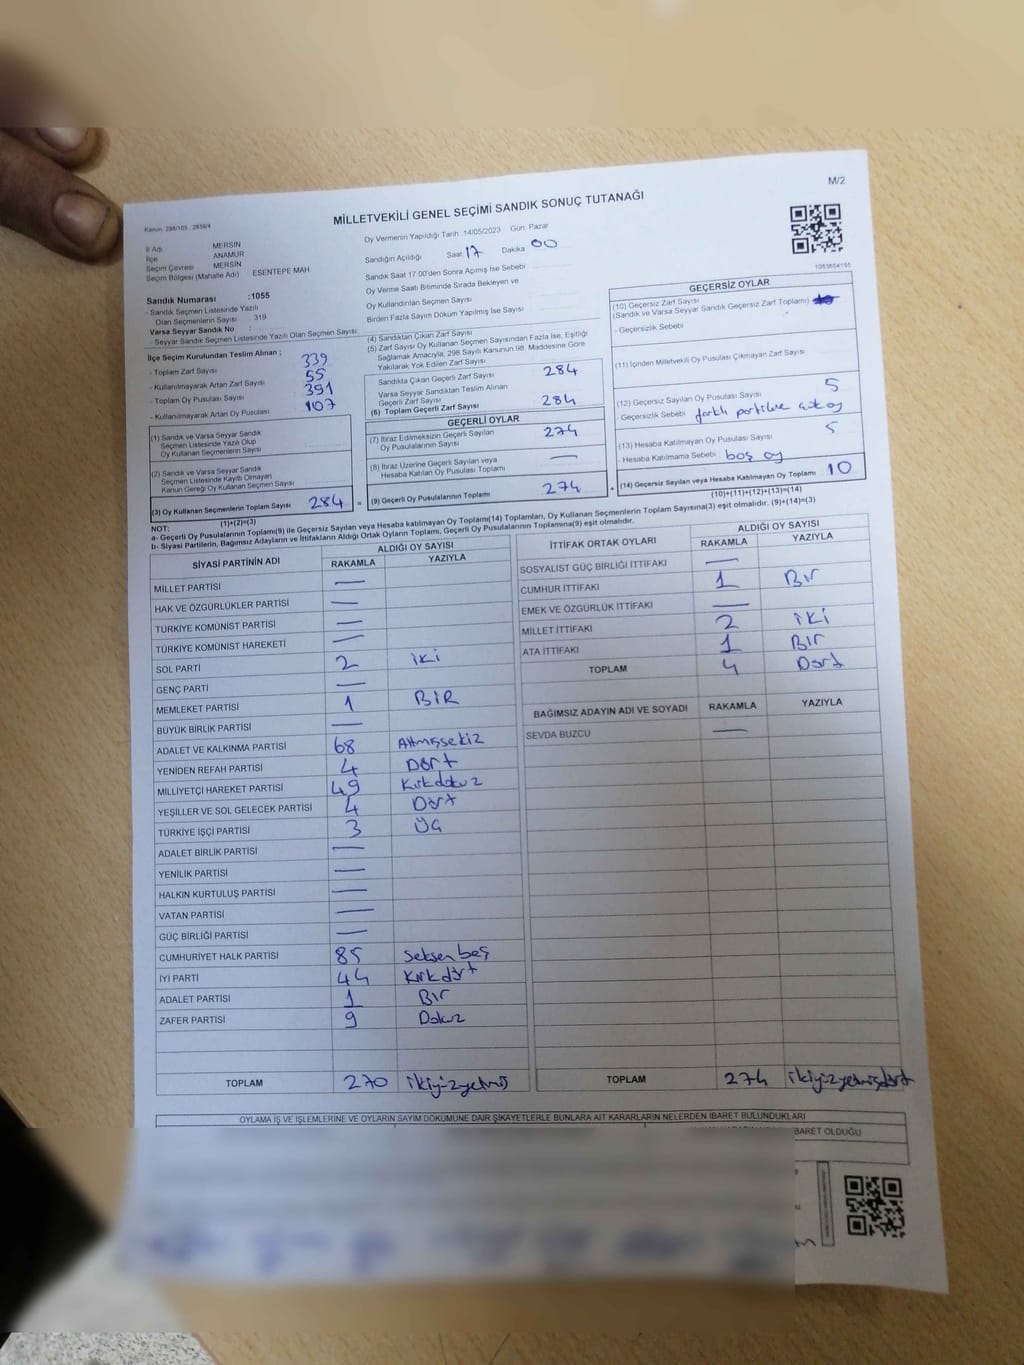 M/2
MİLLETVEKİLİ GENEL SEÇİMİ SANDIK SONUÇ TUTANAĞI
Kanun: 298/105 - 2839/4
İl Adı MERSİN
İlçe ANAMUR
Seçim Çevresi MERSİN
Seçim Bölgesi (Mahalle Adı) ESENTEPE MAH
Sandık Numarası :1055
- Sandık Seçmen Listesinde Yazılı
Olan Seçmenlerin Sayısı 319
Varsa Seyyar Sandık No :
Seyyar Sandık Seçmen Listesinde Yazılı Olan Seçmen Sayısı:
Oy Vermenin Yapıldığı Tarih 14/05/2023 Gün Pazar
Sandığın Açıldığı Saat 17 Dakika 00
Sandık Saat 17.00'den Sonra Açmış İse Sebebi
Oy Verme Saati Bitiminde Sırada Bekleyen ve
Oy Kullandırılan Seçmen Sayısı
Birden Fazla Sayım Döküm Yapılmış İse Sayısı
1083654155
İlçe Seçim Kurulundan Teslim Alınan ;
- Toplam Zarf Sayısı 339
- Kullanılmayarak Artan Zarf Sayısı 55
- Toplam Oy Pusulası Sayısı 391
- Kullanılmayarak Artan Oy Pusulası 107
(1) Sandık ve Varsa Seyyar Sandık
Seçmen Listesinde Yazılı Olup
Oy Kullanan Seçmenlerin Sayısı
(2) Sandık ve Varsa Seyyar Sandık
Seçmen Listesinde Kayıtlı Olmayan
Kanun Gereği Oy Kullanan Seçmen Sayısı
(3) Oy Kullanan Seçmenlerin Toplam Sayısı 284 =
(1)+(2)=(3)
(4) Sandıktan Çıkan Zarf Sayısı
(5) Zarf Sayısı Oy Kullanan Seçmen Sayısından Fazla İse, Eşitliği
Sağlamak Amacıyla, 298 Sayılı Kanunun 98. Maddesine Göre
Yakılarak Yok Edilen Zarf Sayısı
Sandıkta Çıkan Geçerli Zarf Sayısı 284
Varsa Seyyar Sandıktan Teslim Alınan
Geçerli Zarf Sayısı
(6) Toplam Geçerli Zarf Sayısı 284
GEÇERLİ OYLAR
(7) İtiraz Edilmeksizin Geçerli Sayılan
Oy Pusulalarının Sayısı 274
(8) İtiraz Üzerine Geçerli Sayılan veya
Hesaba Katılan Oy Pusulası Toplamı —
(9) Geçerli Oy Pusulalarının Toplamı 274 +
GEÇERSİZ OYLAR
(10) Geçersiz Zarf Sayısı
(Sandık ve Varsa Seyyar Sandık Geçersiz Zarf Toplamı)
- Geçersizlik Sebebi
(11) İçinden Milletvekili Oy Pusulası Çıkmayan Zarf Sayısı
(12) Geçersiz Sayılan Oy Pusulası Sayısı 5
- Geçersizlik Sebebi : farklı partilere oy
(13) Hesaba Katılmayan Oy Pusulası Sayısı 5
- Hesaba Katılmama Sebebi : boş oy
(14) Geçersiz Sayılan veya Hesaba Katılmayan Oy Toplamı 10
(10)+(11)+(12)+(13)=(14)
NOT:
a- Geçerli Oy Pusulalarının Toplamı(9) ile Geçersiz Sayılan veya Hesaba katılmayan Oy Toplamı(14) Toplamları, Oy Kullanan Seçmenlerin Toplam Sayısına(3) eşit olmalıdır. (9)+(14)=(3)
b- Siyasi Partilerin, Bağımsız Adayların ve İttifakların Aldığı Ortak Oyların Toplamı, Geçerli Oy Pusulalarının Toplamına(9) eşit olmalıdır.
SİYASİ PARTİNİN ADI ALDIĞI OY SAYISI
RAKAMLA YAZIYLA
MİLLET PARTİSİ —
HAK VE ÖZGÜRLÜKLER PARTİSİ —
TÜRKİYE KOMÜNİST PARTİSİ —
TÜRKİYE KOMÜNİST HAREKETİ —
SOL PARTİ 2 iki
GENÇ PARTİ —
MEMLEKET PARTİSİ 1 BİR
BÜYÜK BİRLİK PARTİSİ —
ADALET VE KALKINMA PARTİSİ 68 Altmışsekiz
YENİDEN REFAH PARTİSİ 4 Dört
MİLLİYETÇİ HAREKET PARTİSİ 49 Kırkdokuz
YEŞİLLER VE SOL GELECEK PARTİSİ 4 Dört
TÜRKİYE İŞÇİ PARTİSİ 3 Üç
ADALET BİRLİK PARTİSİ —
YENİLİK PARTİSİ —
HALKIN KURTULUŞ PARTİSİ —
VATAN PARTİSİ —
GÜÇ BİRLİĞİ PARTİSİ —
CUMHURİYET HALK PARTİSİ 85 Seksenbeş
İYİ PARTİ 44 Kırkdört
ADALET PARTİSİ 1 Bir
ZAFER PARTİSİ 9 Dokuz
TOPLAM 270 ikiyüzyetmiş
İTTİFAK ORTAK OYLARI ALDIĞI OY SAYISI
RAKAMLA YAZIYLA
SOSYALİST GÜÇ BİRLİĞİ İTTİFAKI —
CUMHUR İTTİFAKI 1 Bir
EMEK VE ÖZGÜRLÜK İTTİFAKI —
MİLLET İTTİFAKI 2 iki
ATA İTTİFAKI 1 Bir
TOPLAM 4 Dört
BAĞIMSIZ ADAYIN ADI VE SOYADI RAKAMLA YAZIYLA
SEVDA BUZCU —
TOPLAM 274 ikiyüzyetmişdört
OYLAMA İŞ VE İŞLEMLERİNE VE OYLARIN SAYIM DÖKÜMÜNE DAİR ŞİKAYETLERLE BUNLARA AİT KARARLARIN NELERDEN İBARET BULUNDUKLARI
BARET OLDUĞU